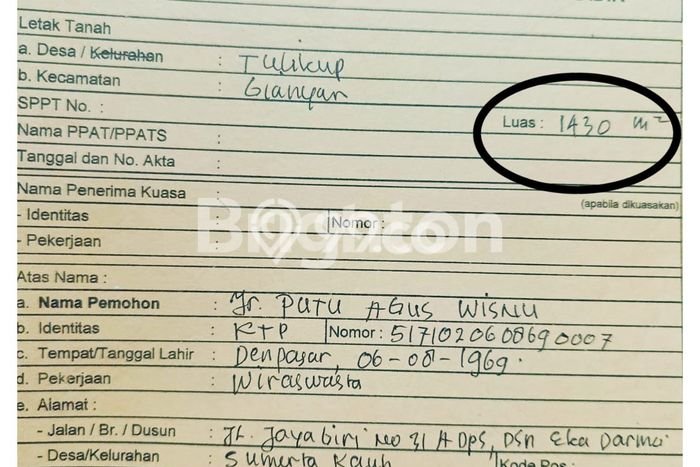 Letak Tanah
a. Desa / Kelurahan : Tulikup
b. Kecamatan : Gianyar
SPPT No. : Luas : 1430 m²
Nama PPAT/PPATS :
Tanggal dan No. Akta :
Nama Penerima Kuasa : (apabila dikuasakan)
- Identitas : Nomor :
- Pekerjaan :
Atas Nama :
a. Nama Pemohon : Ir. PUTU AGUS WISNU
b. Identitas : KTP Nomor : 5171020608690007
c. Tempat/Tanggal Lahir : Denpasar, 06-08-1969.
d. Pekerjaan : Wiraswasta
e. Alamat :
- Jalan / Br. / Dusun : Jl. Jayagiri No 31 A DPS, Dsn Eka Darma
- Desa/Kelurahan : Sumerta Kauh Kode Pos :